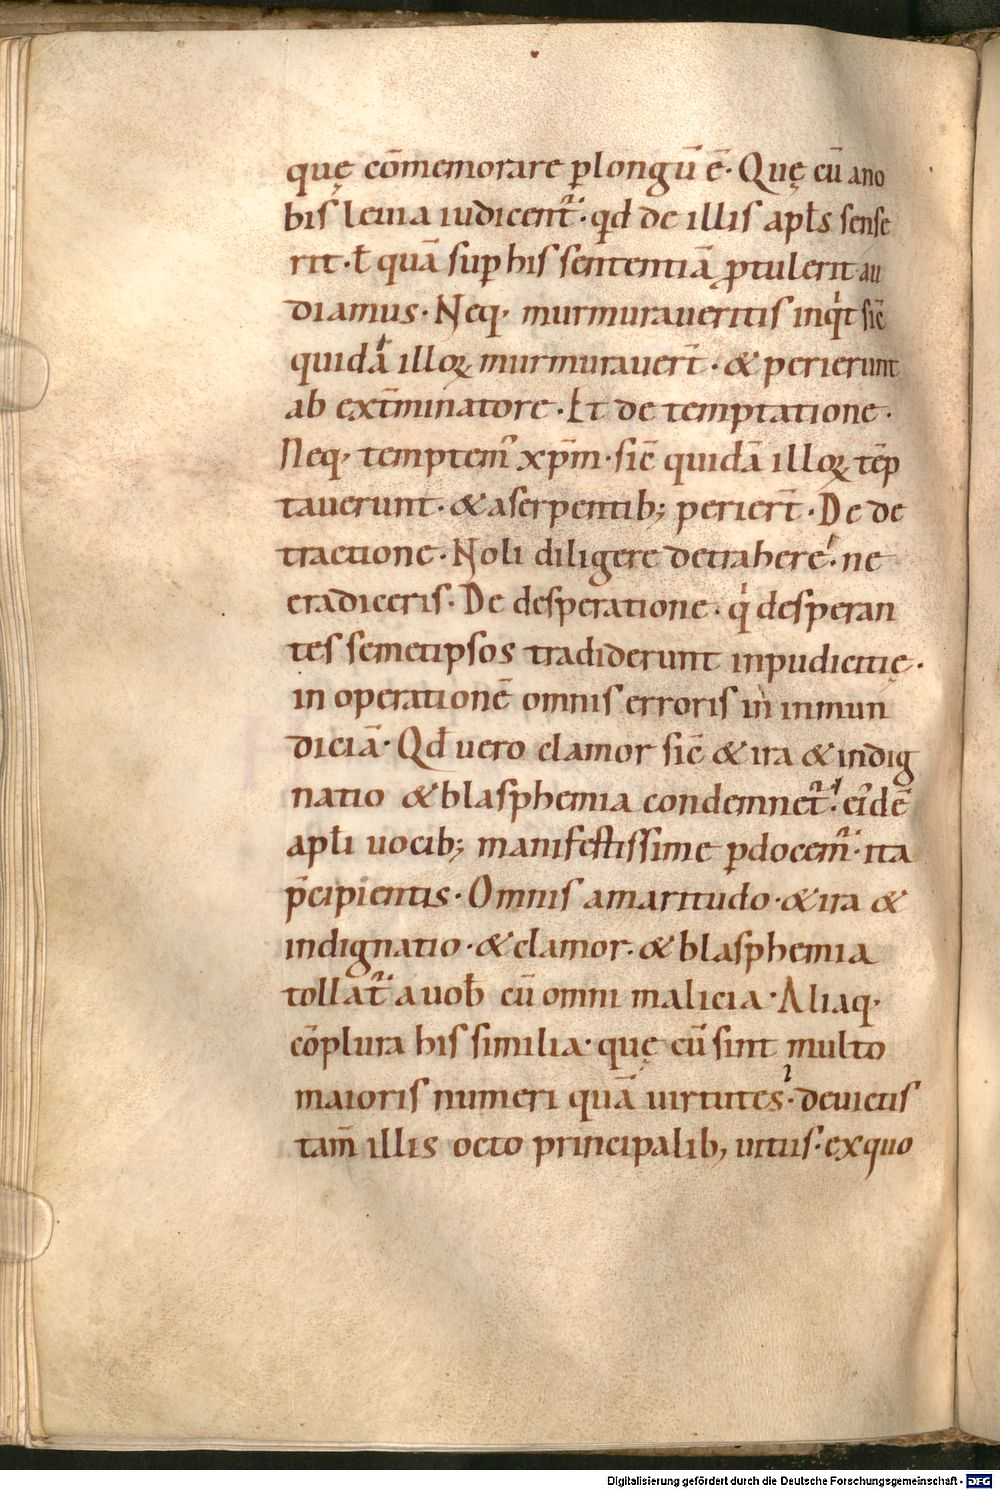 quę cōmemorare ꝑlongū ē· Quę cū ano
bis leuia iudicent᷑· qđ de illis apłs sense
rit· ł quā suꝑ his sententiā ꝓtulerit au
diamus· Neq· murmuraueritis inqͥt sic̄
quidā illoꝝ murmurauer̄t· & perierunt
ab ext̄minatore· Et de temptatione·
Neq· temptem᾿ xp̄m· sic̄ quidā illoꝝ tēp
tauerunt· & aserpentib; perier̄t· De de
tractione· Noli diligere detrahere· ne
eradiceris· De desperatione· qͥ desperan
tes semetipsos tradiderunt inpudicitię·
in operationē omnis erroris in inmun
diciā· Qđ uero clamor sic̄ & ira & indig
natio & blasphemia condemnet᷑· eīdē
apłi uocib; manifestissime ꝑdocem᷑· ita
p̄cipientis· Omnis amaritudo· & ira &
indignatio· & clamor· & blasphemia
tollat᷑ auob̄ cū omni malicia· Aliaq·
cōplura his similia· quę cū sint multo
maioris numeri quā uirtutes· deuictis
tam̄ illis octo principalib; uitiis· ex quo
Digitalisierung gefördert durch die Deutsche Forschungsgemeinschaft - DFG